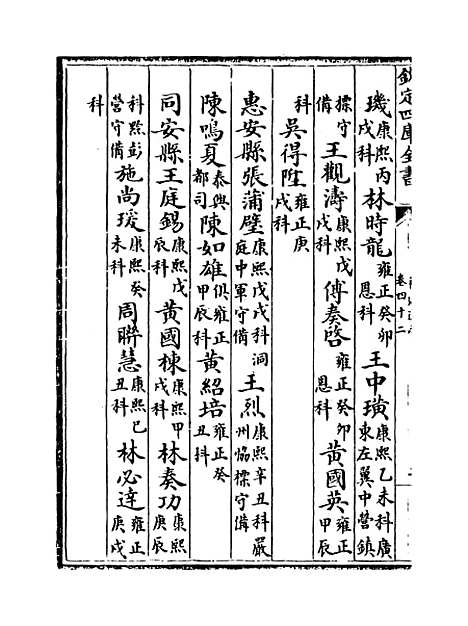 欽定四庫全書
卷四十二
璣康熙丙戌科林時龍雍正癸卯恩科王中璜康熙乙未科廣東左翼中營鎮
標守備王觀濤康熙戊戌科傅奏啓雍正癸卯恩科黃國英雍正甲辰
科吳得陞雍正庚戌科
惠安縣張蒲璧康熙戊戌科洞庭中軍守備王烈康熙辛丑科嚴州恊標守備
陳鳴夏泰興都司陳如雄俱雍正甲辰科黃紹培雍正癸丑科
同安縣王庭錫康熙戊辰科黃國棟康熙甲戌科林奏功康熙庚辰
科彭營守備施尚瑗康熙癸未科周聯慧康熙已丑科林必達雍正庚戌
科